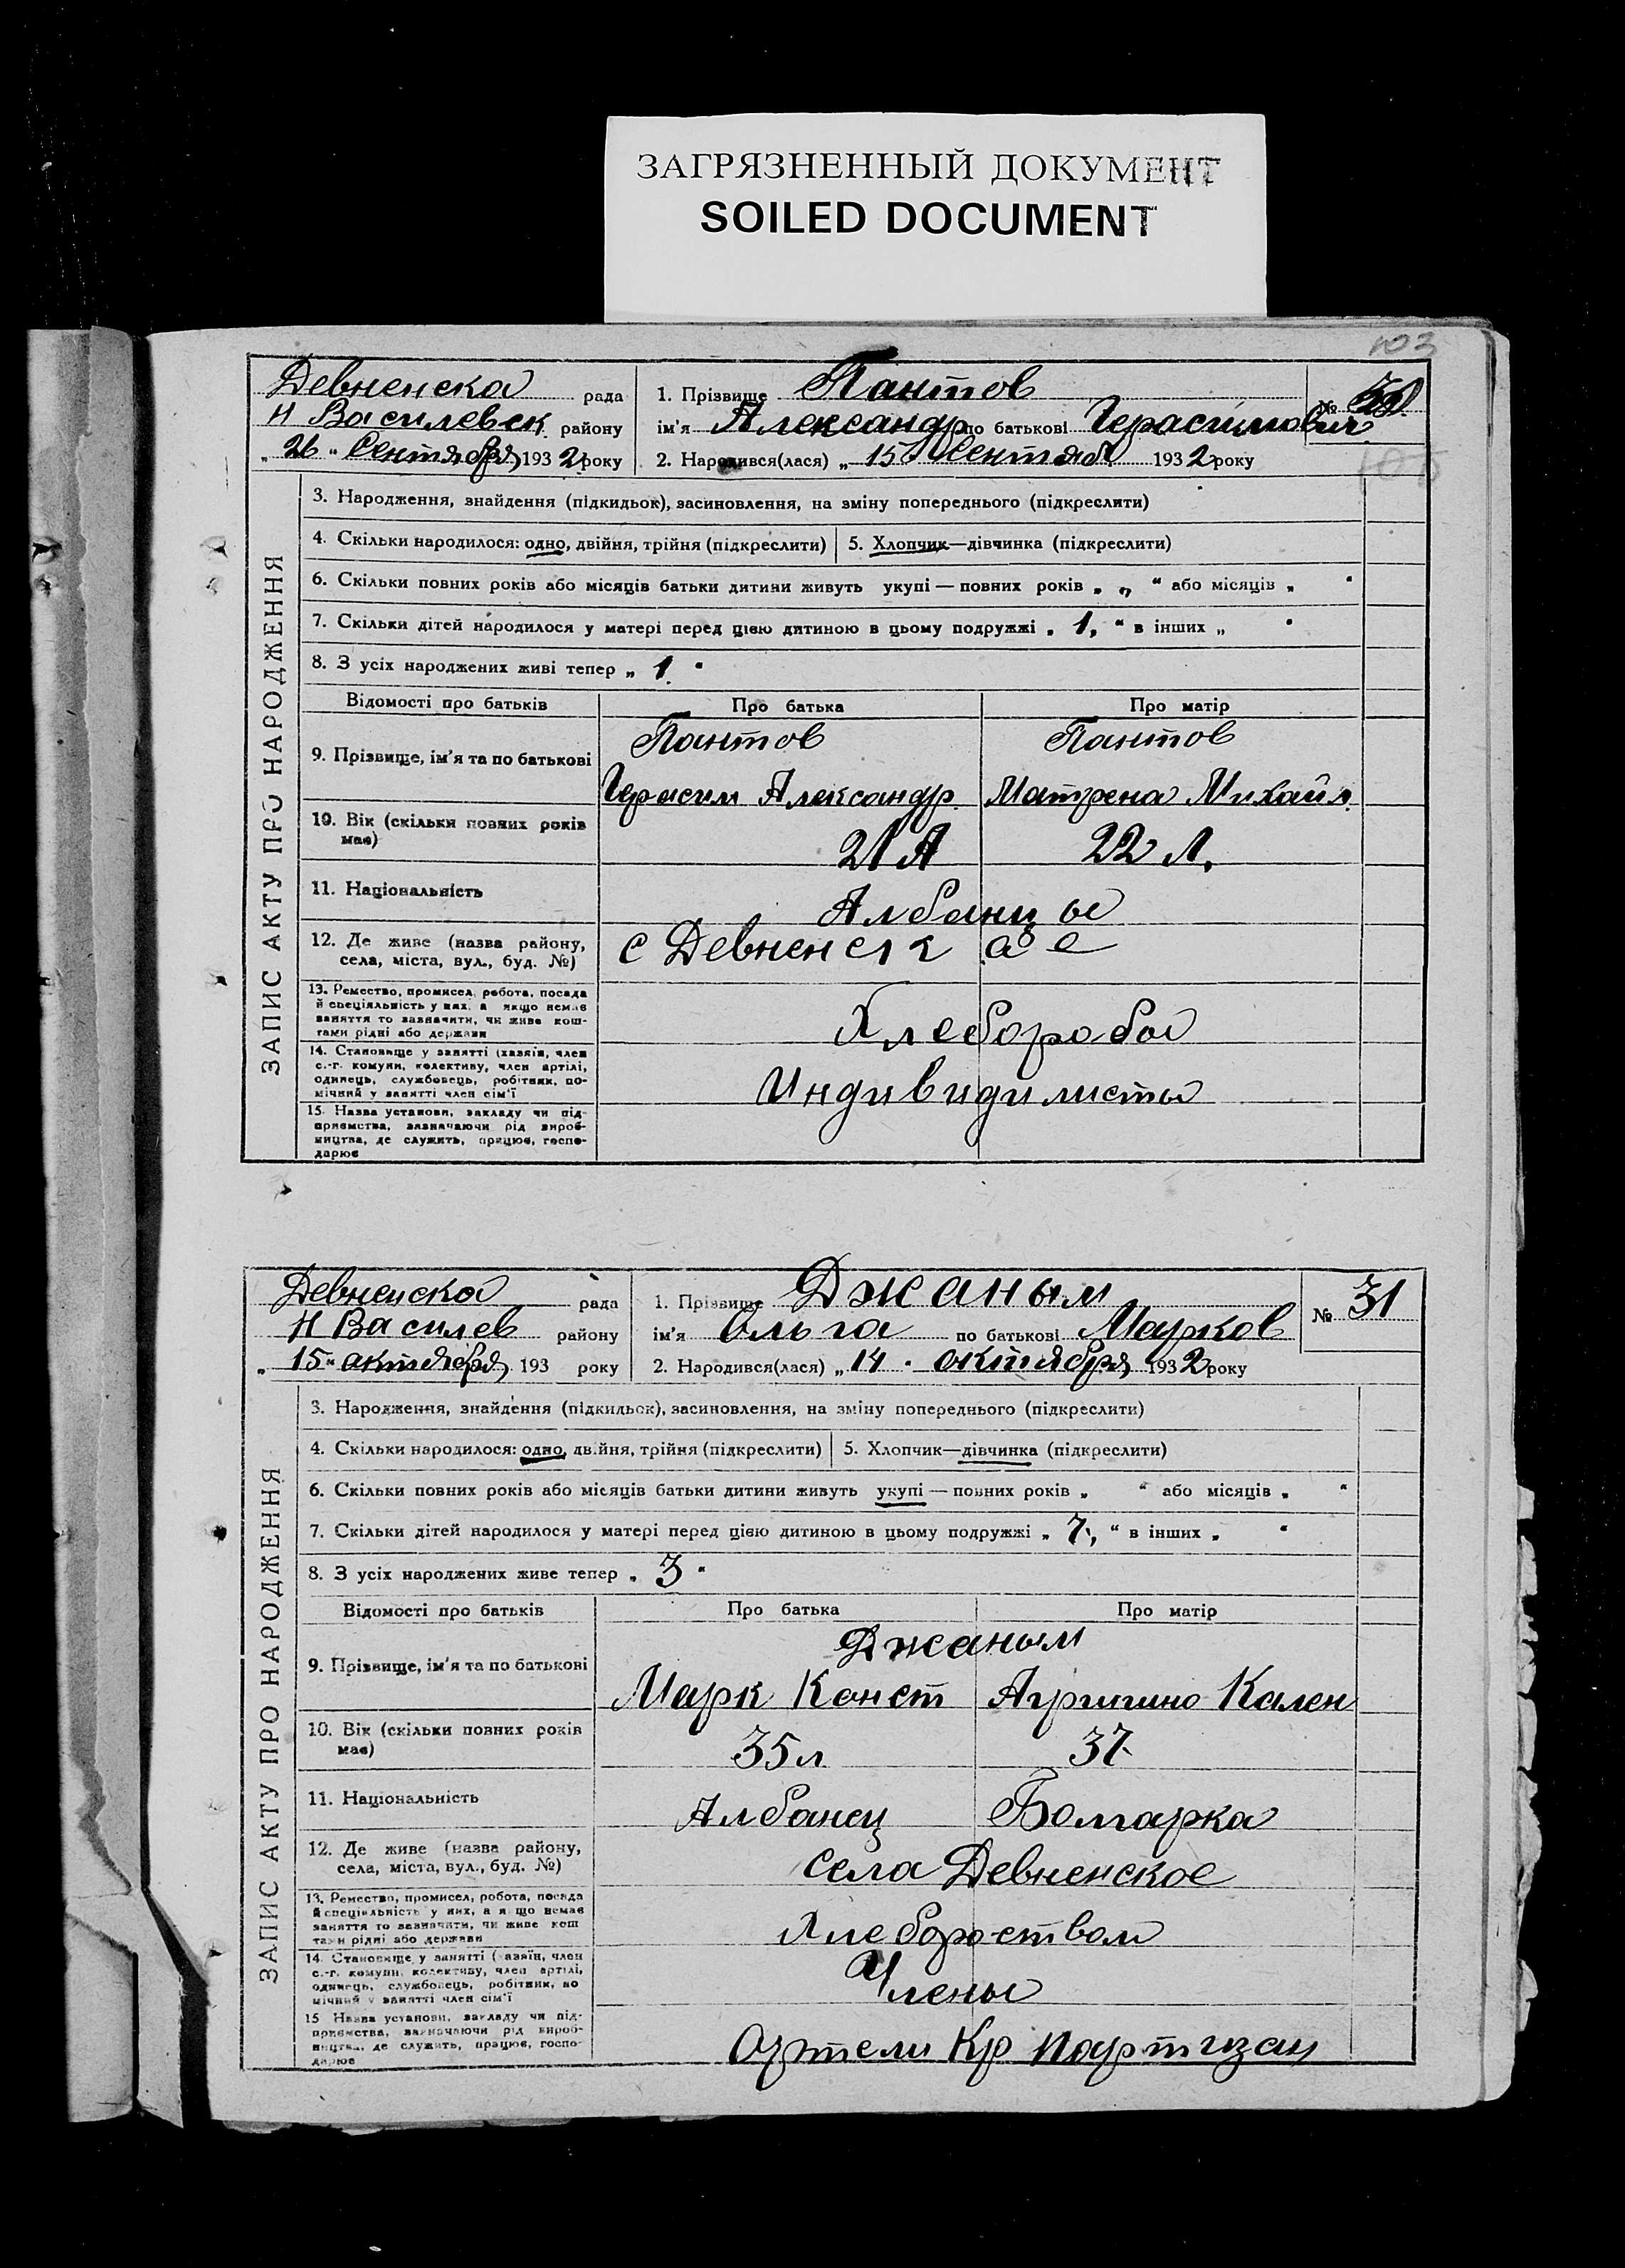 ЗАГРЯЗНЕННЫЙ ДОКУМЕНТ
SOILED DOCUMENT
103
Девненска рада
Н Василевск району
„ 26 " Сентября 1932 року
1. Прізвище Пантов
ім'я Александр по батькові Герасимович
№ 30
2. Народився(лася) „ 15 Сентяб 1932 року
ЗАПИС АКТУ ПРО НАРОДЖЕННЯ
3. Народження, знайдення (підкидьок), засиновлення, на зміну попереднього (підкреслити)
4. Скільки народилося: одно, двійня, трійня (підкреслити) 5. Хлопчик—дівчинка (підкреслити)
6. Скільки повних років або місяців батьки дитини живуть укупі — повних років „ „ " або місяців „ "
7. Скільки дітей народилося у матері перед цією дитиною в цьому подружжі „ 1, " в інших „ "
8. З усіх народжених живі тепер „ 1 "
Відомості про батьків Про батька Про матір
9. Прізвище, ім'я та по батькові
Пантов Пантов
Герасим Александр. Матрена Михайл.
10. Вік (скільки повних років
має)
21 Л 22 Л.
11. Національність
Албанцы
12. Де живе (назва району,
села, міста, вул., буд. №)
с Девненск ае
13. Ремество, промисел, робота, посада
й спеціяльність у них, а якщо немає
заняття то зазначити, чи живе кош-
тами рідні або держави
Хлеборобы
14. Становище у занятті (хазяїн, член
с.-г. комуни, колективу, член артілі,
одинець, службовець, робітник, по-
мічний у занятті член сім'ї
Индивидилисты
15. Назва установи, закладу чи під-
приємства, зазначаючи рід вироб-
ництва, де служить, працює, госпо-
дарює
Девненска рада
Н Василев району
„ 15 " актября 193 року
1. Прізвище Джаным
ім'я Ольга по батькові Марков
№ 31
2. Народився(лася) „ 14 " октября 1932 року
ЗАПИС АКТУ ПРО НАРОДЖЕННЯ
3. Народження, знайдення (підкидьок), засиновлення, на зміну попереднього (підкреслити)
4. Скільки народилося: одно, двійня, трійня (підкреслити) 5. Хлопчик—дівчинка (підкреслити)
6. Скільки повних років або місяців батьки дитини живуть укупі — повних років „ " або місяців „ "
7. Скільки дітей народилося у матері перед цією дитиною в цьому подружжі „ 7, " в інших „ "
8. З усіх народжених живе тепер „ 3 "
Відомості про батьків Про батька Про матір
9. Прізвище, ім'я та по батькові
Джаным
Марк Конст Кален
10. Вік (скільки повних років
має)
35 л. 37
11. Національність
Албанец Болгарка
12. Де живе (назва району,
села, міста, вул., буд. №)
села Девненское
13. Ремество, промисел, робота, посада
й спеціяльність у них, а якщо немає
заняття то зазначити, чи живе кош
тами рідні або держави
Хлебороством
14. Становище у занятті (хазяїн, член
с.-г. комуни, колективу, член артілі,
одинець, службовець, робітник, по
мічний у занятті член сім'ї
Члены
15 Назва установи, закладу чи під-
приємства, зазначаючи рід вироб-
ництва, де служить, працює, госпо-
дарює
Артели Кр партизан